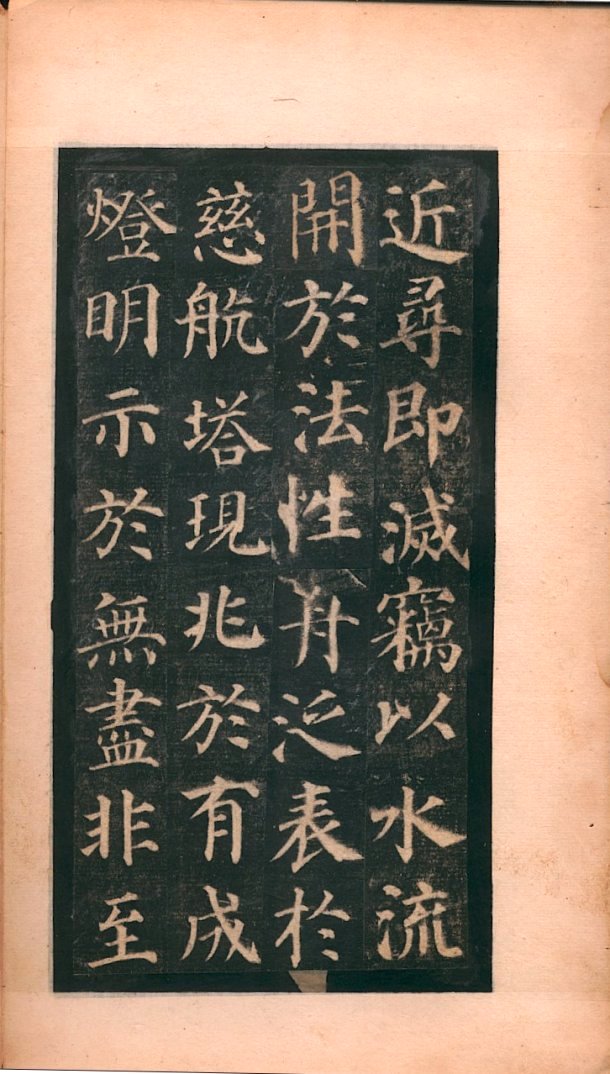 近尋即滅竊以水流
開於法性舟泛表於
慈航塔現兆於有成
燈明示於無盡非至